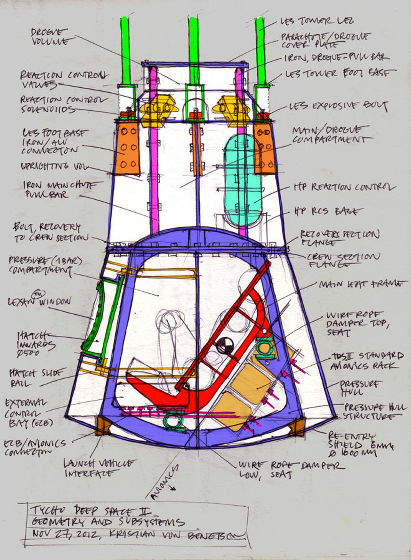 DROGUE
VOLUME
REACTION CONTROL
VALVES
REACTION CONTROL
SOLENOIDS
LES FOOT BASE
IRON/ALU
CONNECTION
UPRIGHTING VOL
IRON MAIN CHUTE
PULL BAR
BOLT, RECOVERY
TO CREW SECTION
PRESSURE (1 BAR)
COMPARTMENT
LEXAN WINDOW
HATCH
INWARDS
Ø500
HATCH SLIDE
RAIL
EXTERNAL
CONTROL
BAY (ECB)
ECB/AVIONICS
CONNECTOR
LAUNCH VEHICLE
INTERFACE
AVIONICS
LES TOWER LEG
PARACHUTE/DROGUE
COVER PLATE
IRON, DROGUE-PULL BAR
LES TOWER FOOT BASE
LES EXPLOSIVE BOLT
MAIN/DROGUE
COMPARTMENT
HP REACTION CONTROL
HP RCS BASE
RECOVERY SECTION
FLANGE
CREW SECTION
FLANGE
MAIN SEAT FRAME
WIRE ROPE
DAMPER TOP,
SEAT
STANDARD
AVIONICS RACK
PRESSURE
HULL
PRESSURE HULL
STRUCTURE
RE-ENTRY
SHIELD 6MM
WIRE ROPE DAMPER
LOW, SEAT
TYCHO DEEP SPACE II
GEOMETRY AND SUBSYSTEMS
NOV 27, 2012, KRISTIAN VON BENGTSON